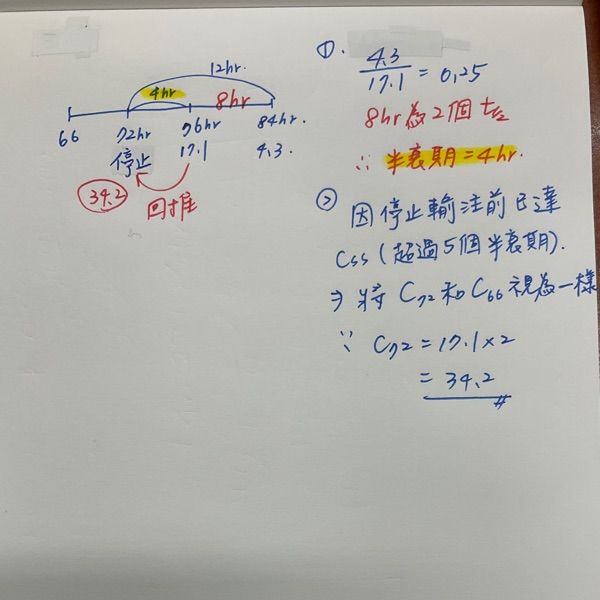 12hr.
4hr
8hr
66 72hr 76hr 84hr.
停止 17.1 4.3.
34.2 回推
①. 4.3
17.1 = 0.25
8hr為2個 t½
∴ 半衰期=4hr.
② 因停止輸注前已達
Css (超過5個半衰期).
⇒ 將 C72 和 C66 視為一樣
∵ C72 = 17.1×2
= 34.2